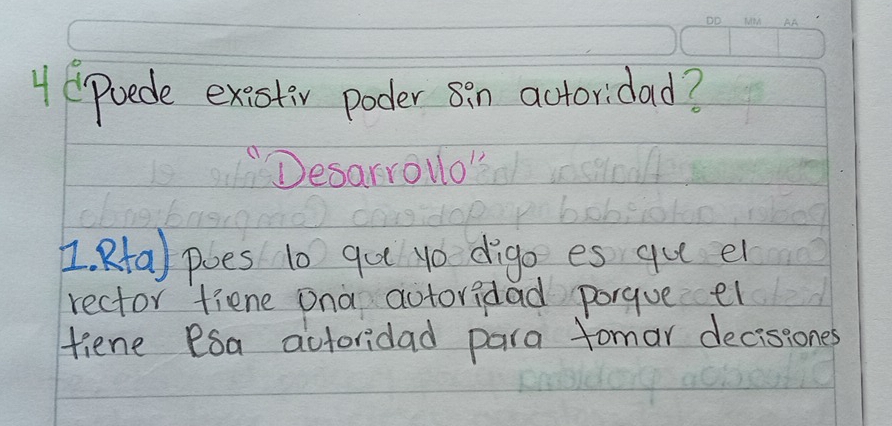 DD MM AA
4 ¿Puede existir poder sin autoridad?
"Desarrollo"
1.Rta) pues lo que yo digo es que el
rector tiene una autoridad porque el
tiene esa autoridad para tomar decisiones